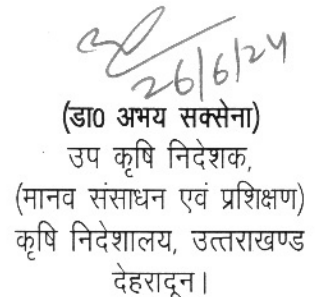 26/6/24
(डा0 अभय सक्सेना)
उप कृषि निदेशक,
(मानव संसाधन एवं प्रशिक्षण)
कृषि निदेशालय, उत्तराखण्ड
देहरादून।